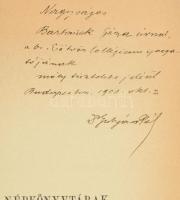 Nagyságos
Bartoniek Géza úrnak
a br. Eötvös Collegium igazga-
tójának
mély tisztelete jeléül
Budapesten, 190 okt.
Dr Gulyás Pál
NÉPKÖNYVTÁRAK